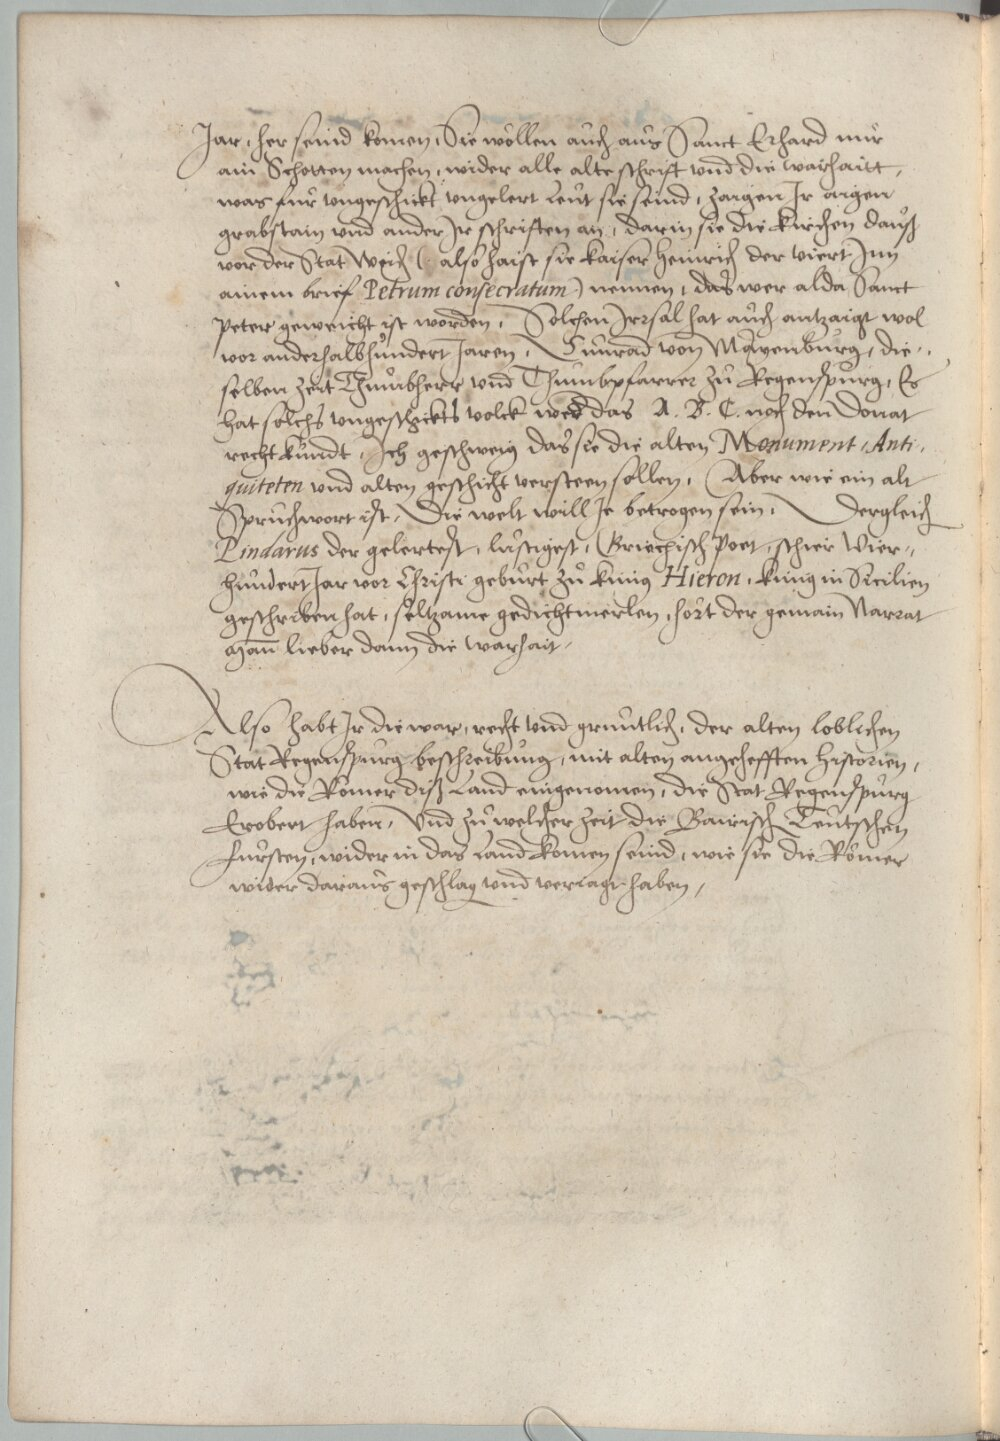 Jar, her seind komen, Sie wöllen auch aus Sanct Erhard nur
ain Schotten machen, wider alle alte schrifft vnd die warhaitt,
was für vngeschickt vngelert Leut sie seind, zaigen Jr aigen
grabstain vnd ander Jr schriften an, darin sie die kirchen dauß
vor der Stat Weich (: also haist sie kaiser Heinrich der viert Jnn
ainem brief Petrum consecratum) nennen, das wer alda Sanct
Peter geweicht ist worden, Solchen Jrrsal hat auch antzaigt wol
vor anderhalbhundert Jaren, Cunrad von Megenburg, die„
selben zeit Thumbherr vnd Thumbpfarrer zu Regenspurg, Es
hat solchs vngeschickts volck wed das A. B. C. noch den Donat
recht kundt, Jch geschweig das sie die alten Monument, Anti„
quiteten vnd alten geschicht versteen sollen, Aber wie ein alt
Spruchwort ist, Die welt will Je betrogen sein, Dergleich
Pindarus der gelertest, lustigest, Griechisch Poet, schier Vier„
hundert Jar vor Christi geburt zu künig Hieron, künig in Sicilien
geschriben hat, seltzame gedichtmerlen, hört der gemain Narrat
Man lieber dann die warhait,
Also habt Jr die war, recht vnd gruntlich, der alten loblichen
Stat Regenspurg beschreibung, mit alten angehefften Historien,
wie die Römer diß Land eingenomen, die Stat Regenspurg
Erobert haben, Vnd zu welcher zeit die Bairisch Teutschen
Fursten, wider in das Land komen seind, wie sie die Römer
wider daraus geschlag vnd veriagt haben,